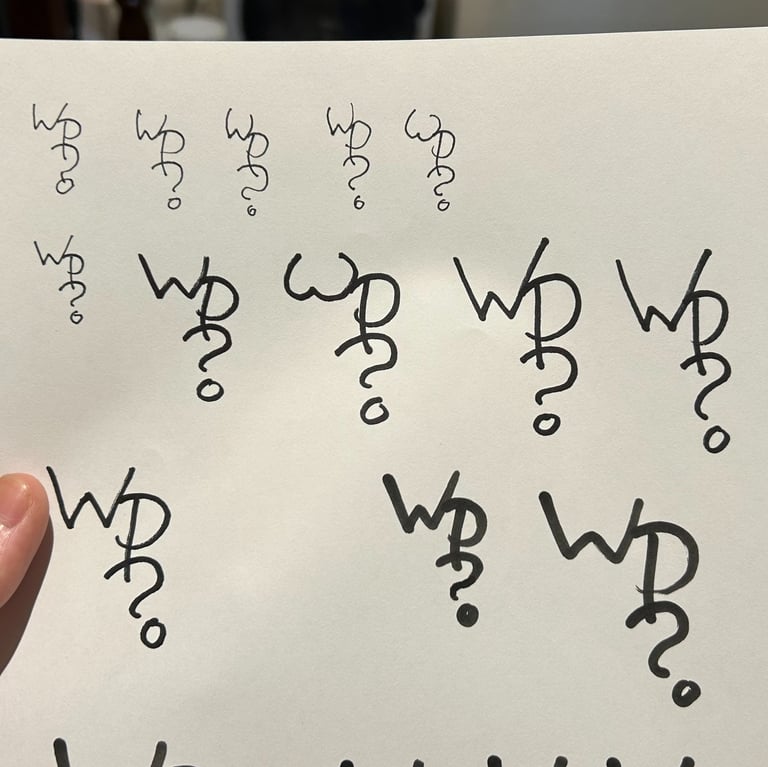 WP? WP? WP? WP? WP?
WP? WP? WP? WP? WP?
WP? WP? WP?